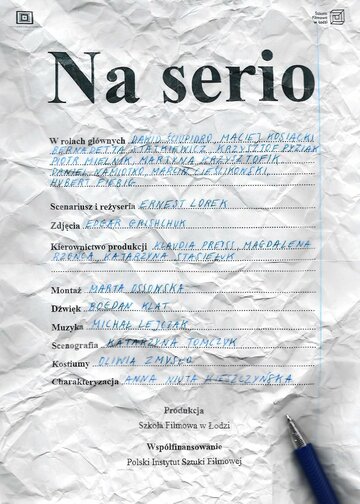 Szkoła
Filmowa
w Łodzi
Na serio
W rolach głównych DAWID ŚCIUPIDRO, MACIEJ KOSIACKI
BERNADETTA STATKIEWICZ, KRZYSZTOF PYZIAK
PIOTR MIELNIK, MARTYNA KRZYSZTOFIK
DANIEL NAMIOTKO, MARCIN CIEŚLIKOWSKI,
HUBERT FIEBIG
Scenariusz i reżyseria ERNEST LOREK
Zdjęcia EDGAR GRISHCHUK
Kierownictwo produkcji KLAUDIA PREISS, MAGDALENA
RZOŃCA, KATARZYNA STASIEŁUK
Montaż MARTA OSSOWSKA
Dźwięk BOGDAN KLAT
Muzyka MICHAŁ LEJCZAK
Scenografia KATARZYNA TOMCZYK
Kostiumy OLIWIA ZMYSŁO
Charakteryzacja ANNA NIUTA
Produkcja
Szkoła Filmowa w Łodzi
Współfinansowanie
Polski Instytut Sztuki Filmowej